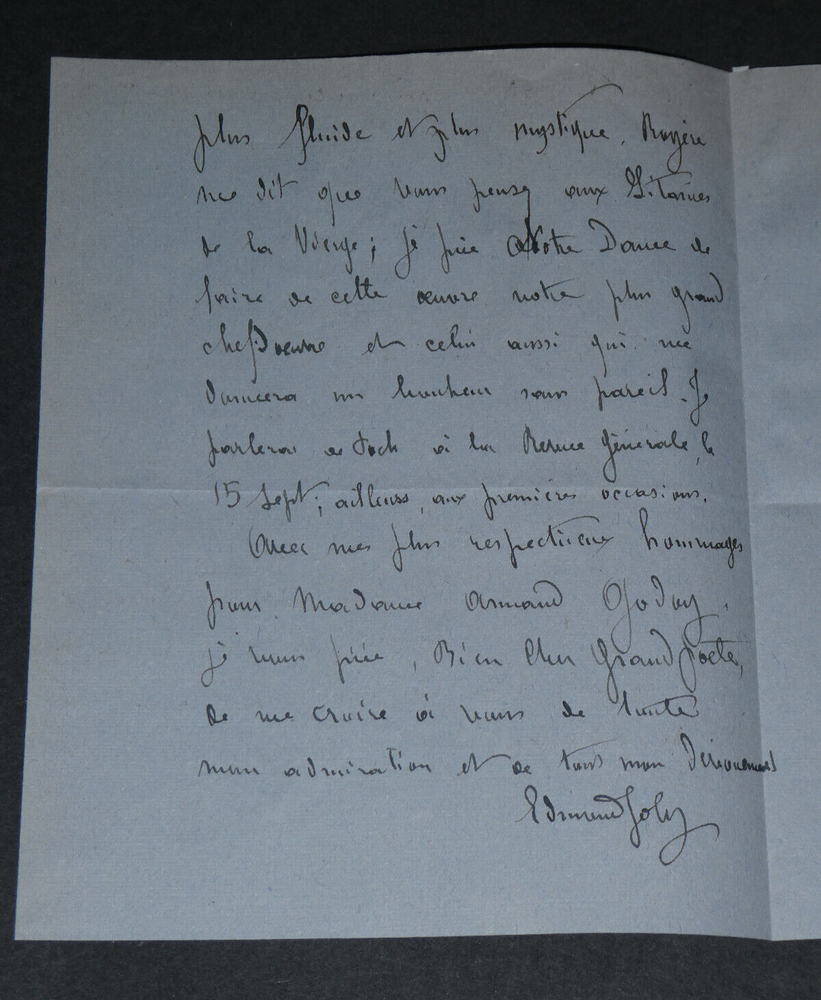 plus fluide et plus mystique. Royère
me dit que vous pensez aux Litanies
de la Vierge ; je prie Notre Dame de
faire de cette œuvre votre plus grand
chef d'œuvre et celui aussi qui me
donnera un bonheur sans pareil. Je
parlerai de Foch à la Revue Générale, le
15 Sept ; ailleurs, aux premières occasions.
Avec mes plus respectueux hommages
pour Madame Armand Godoy,
je vous prie, Bien Cher Grand Poète,
de me croire à vous de toute
mon admiration et de tout mon dévouement
Edmond Joly